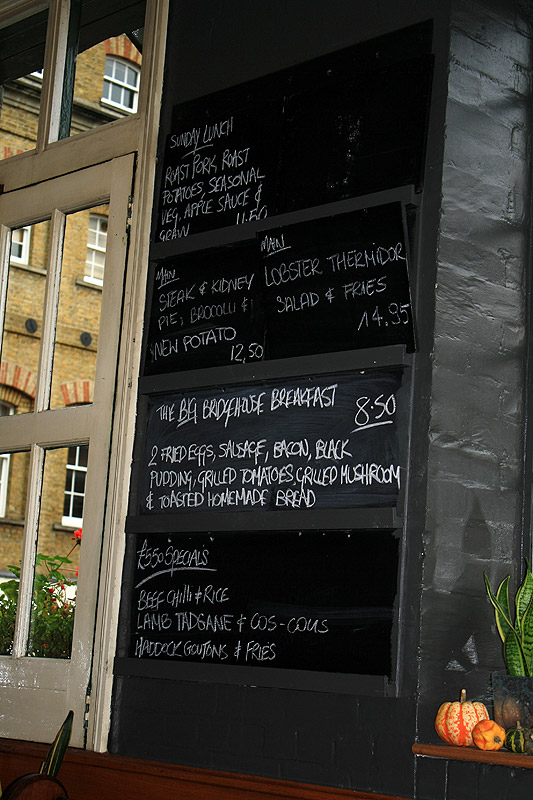 SUNDAY LUNCH
ROAST PORK, ROAST
POTATOES, SEASONAL
VEG, APPLE SAUCE &
GRAVY 11,50
MAIN
STEAK & KIDNEY
PIE, BROCOLLI &
NEW POTATO
12,50
MAIN
LOBSTER THERMIDOR
SALAD & FRIES
14,95
THE BIG BRIDGEHOUSE BREAKFAST 8.50
2 FRIED EGGS, SAUSAGE, BACON, BLACK
PUDDING, GRILLED TOMATOES, GRILLED MUSHROOM
& TOASTED HOMEMADE BREAD
£5.50 SPECIALS
BEEF CHILLI & RICE
LAMB TADGANE & COS-COUS
HADDOCK GOUJONS & FRIES